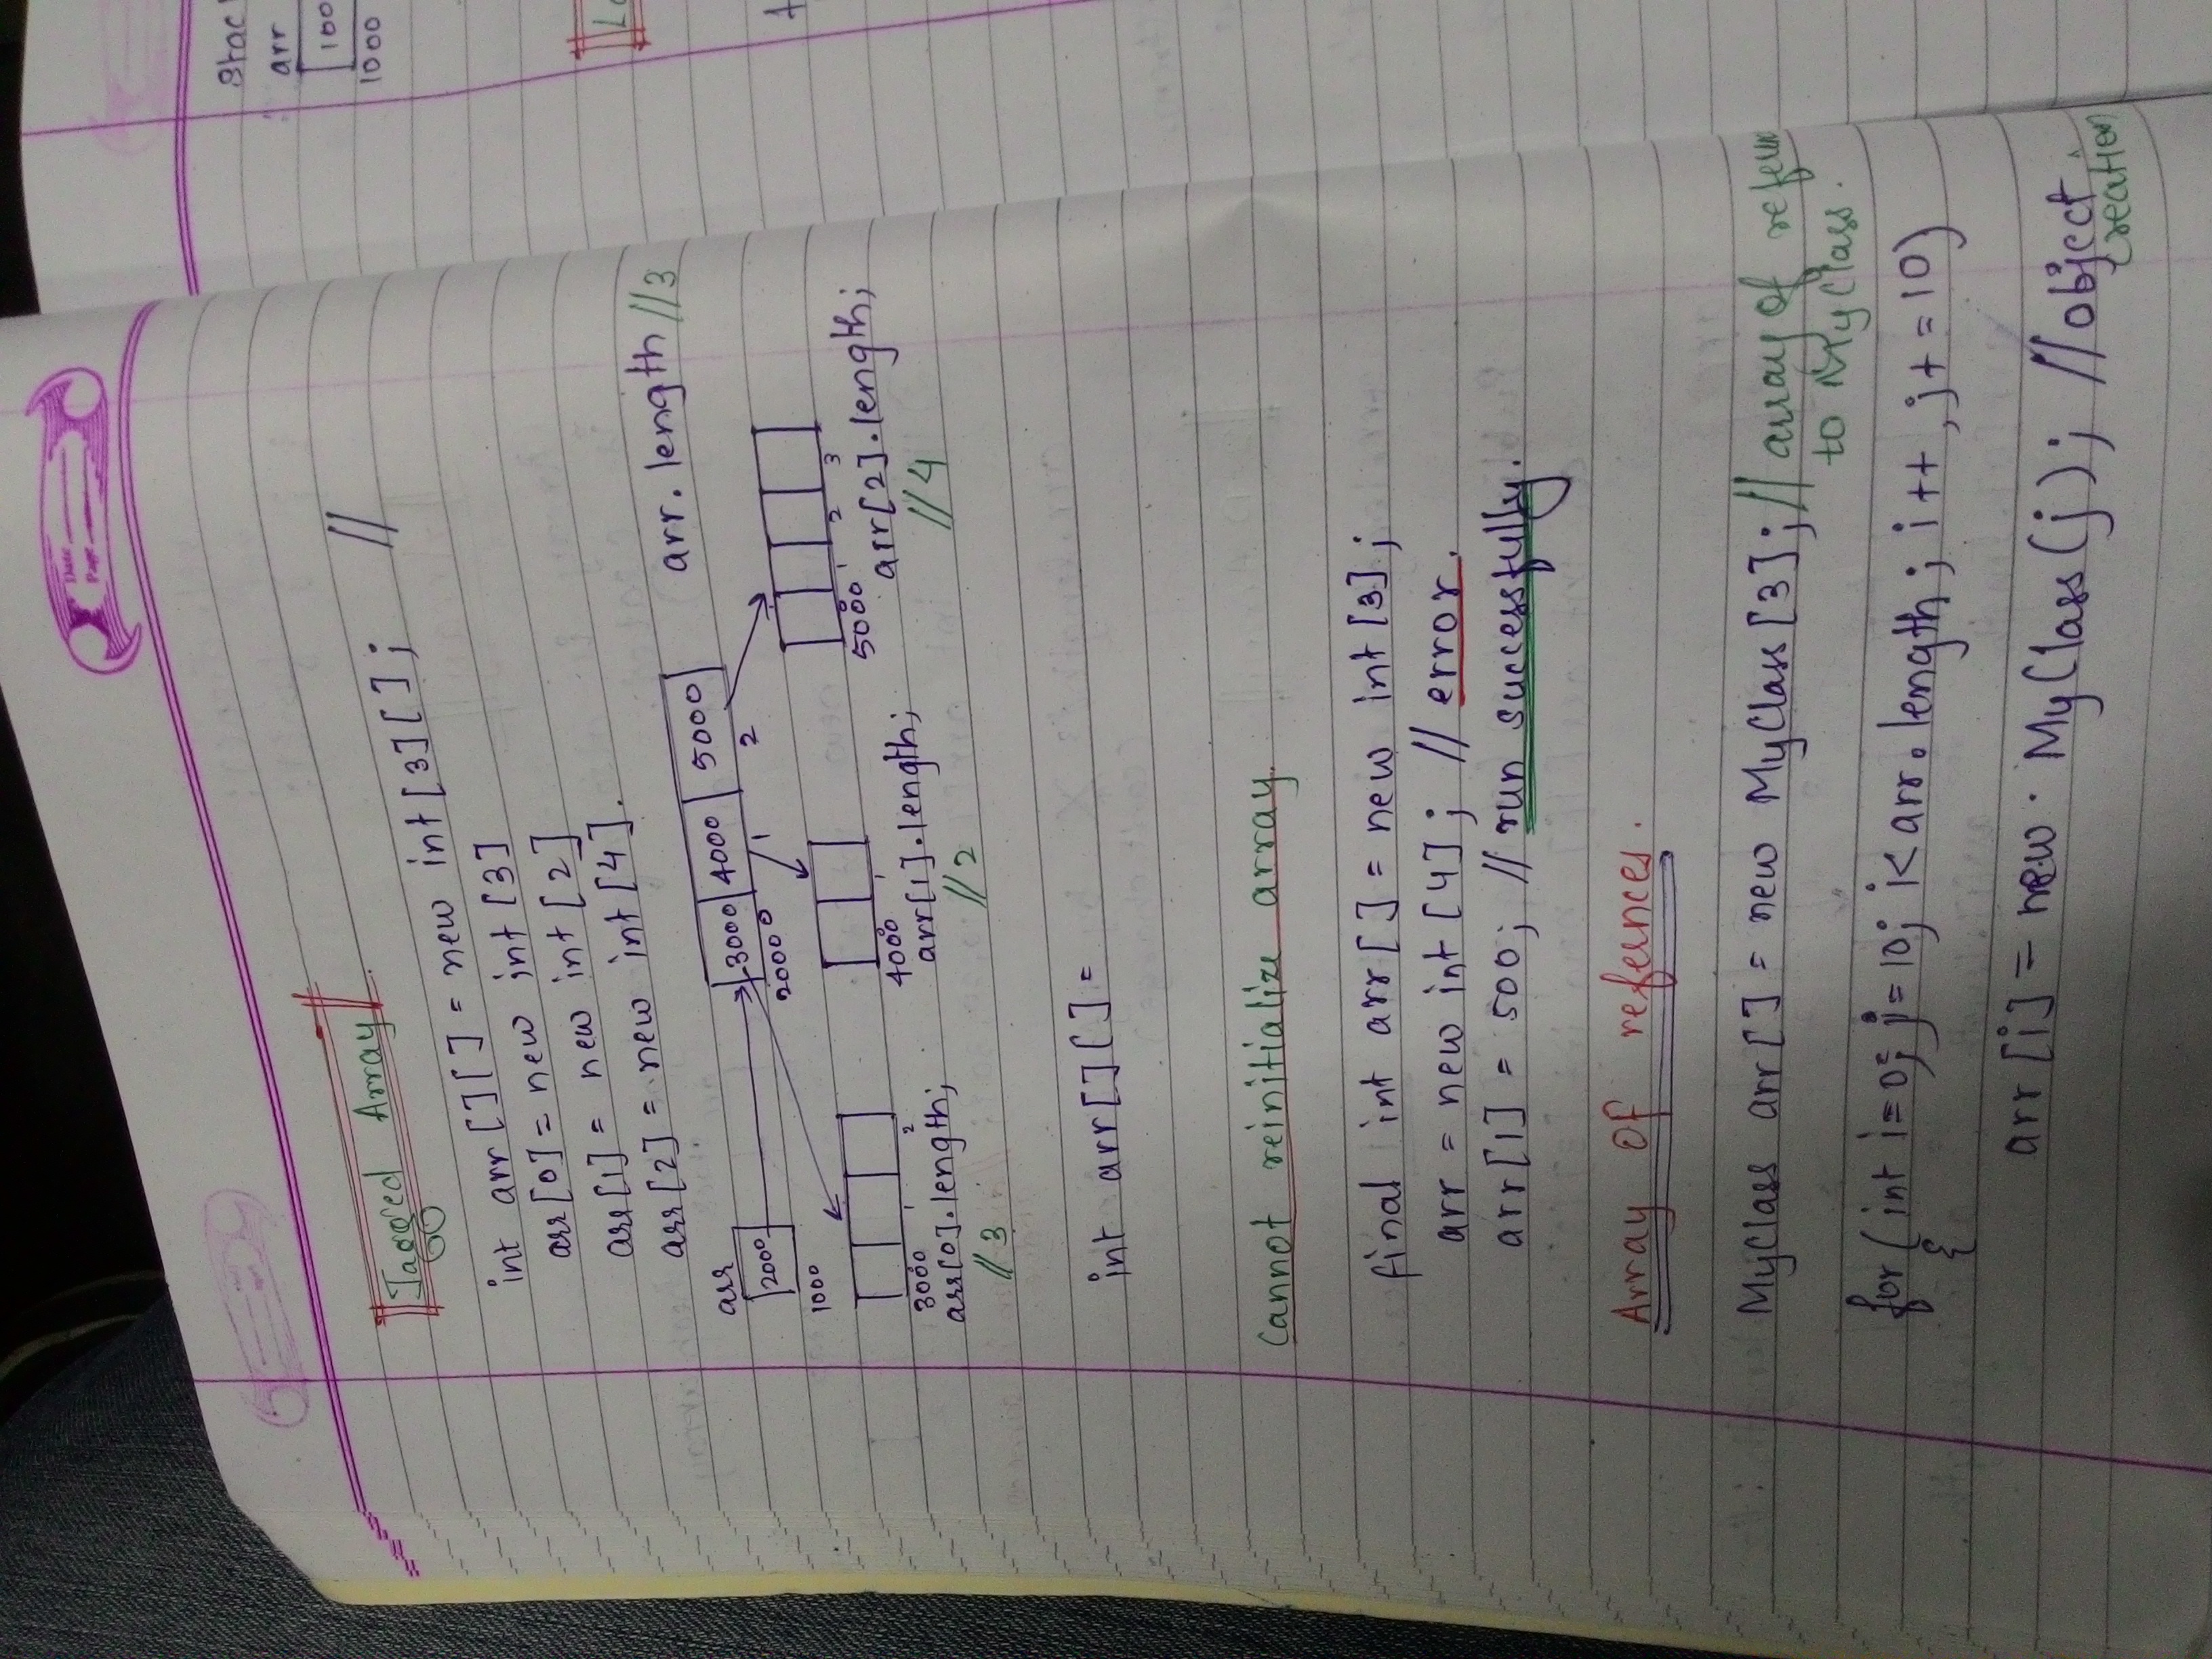 Date
Page
Jagged Array
int arr[][] = new int[3][]; //
arr[0] = new int[3]
arr[1] = new int[2]
arr[2] = new int[4].
arr.length //3
arr
2000
1000
3000 4000 5000
2000 0 1 2
3000 0 1 2
arr[0].length;
//3
4000 0 1
arr[1].length;
//2
5000 0 1 2 3
arr[2].length;
//4
int arr[][] =
Cannot reinitialize array.
final int arr[] = new int[3];
arr = new int[4]; // error.
arr[1] = 500; // run successfully.
Array Of refernces.
MyClass arr[] = new MyClass[3]; // array of
to MyClass.
for(int i=0; j=10; i<arr.length; i++, j+=10)
{
arr[i] = new MyClass(j); //object
creation
arr
1000